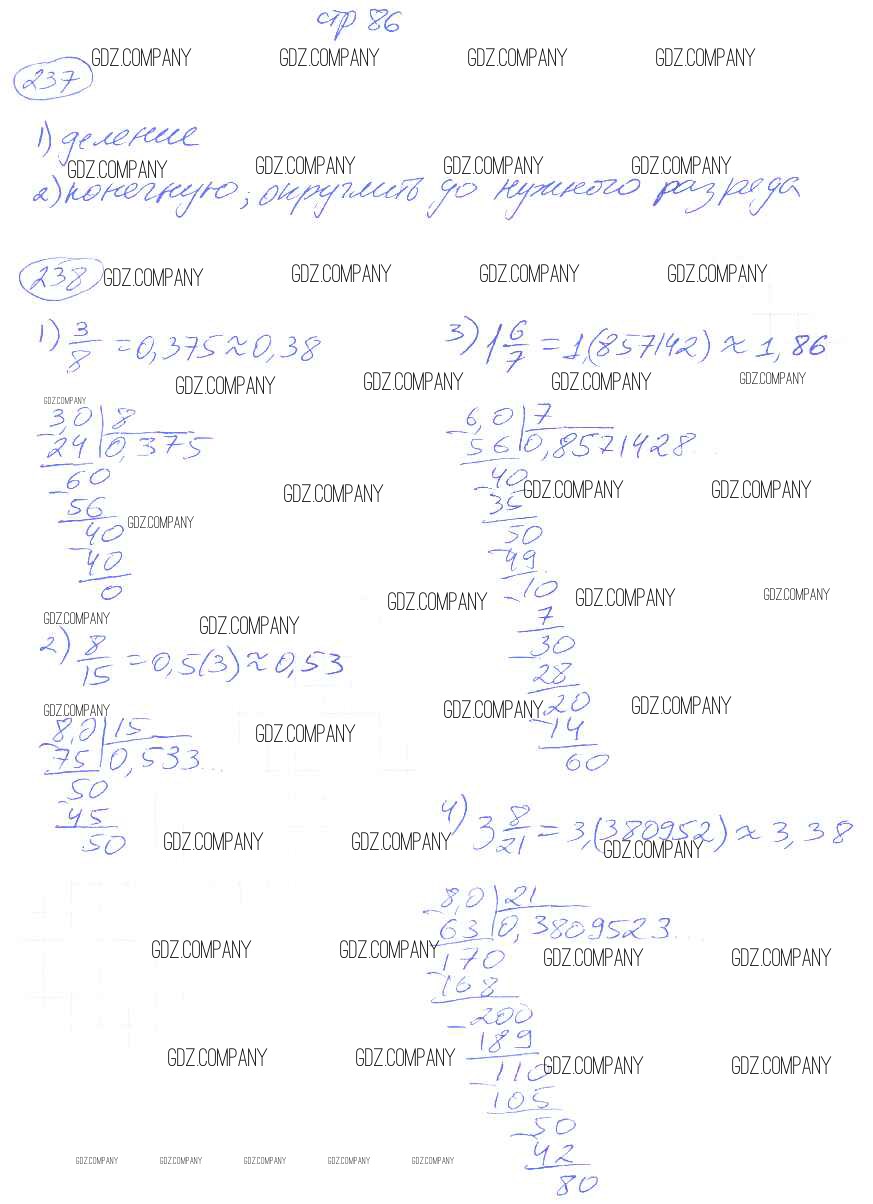 стр 86
GDZ.COMPANY GDZ.COMPANY GDZ.COMPANY GDZ.COMPANY
237
1) деление
GDZ.COMPANY GDZ.COMPANY GDZ.COMPANY GDZ.COMPANY
2) конечную; округлить до нужного разреда
238 GDZ.COMPANY GDZ.COMPANY GDZ.COMPANY GDZ.COMPANY
1) 3/8 = 0,375 ≈ 0,38
GDZ.COMPANY
GDZ.COMPANY
3,0 | 8
- 24 | 0,375
60
- 56
GDZ.COMPANY
GDZ.COMPANY
40
- 40
0
GDZ.COMPANY
GDZ.COMPANY
2) 8/15 = 0,5(3) ≈ 0,53
GDZ.COMPANY
GDZ.COMPANY
8,0 | 15
- 75 | 0,533...
50
- 45
50
GDZ.COMPANY GDZ.COMPANY
3) 1 6/7 = 1,(857142) ≈ 1,86
GDZ.COMPANY GDZ.COMPANY GDZ.COMPANY
6,0 | 7
- 56 | 0,8571428...
40
- 35
GDZ.COMPANY GDZ.COMPANY
50
- 49
10
- 7
GDZ.COMPANY GDZ.COMPANY GDZ.COMPANY
30
- 28
20
- 14
GDZ.COMPANY GDZ.COMPANY
60
4) 3 8/21 = 3,(380952) ≈ 3,38
GDZ.COMPANY
8,0 | 21
- 63 | 0,3809523...
170
- 168
GDZ.COMPANY GDZ.COMPANY GDZ.COMPANY GDZ.COMPANY
200
- 189
110
- 105
GDZ.COMPANY GDZ.COMPANY GDZ.COMPANY GDZ.COMPANY
50
- 42
80
GDZ.COMPANY GDZ.COMPANY GDZ.COMPANY GDZ.COMPANY GDZ.COMPANY